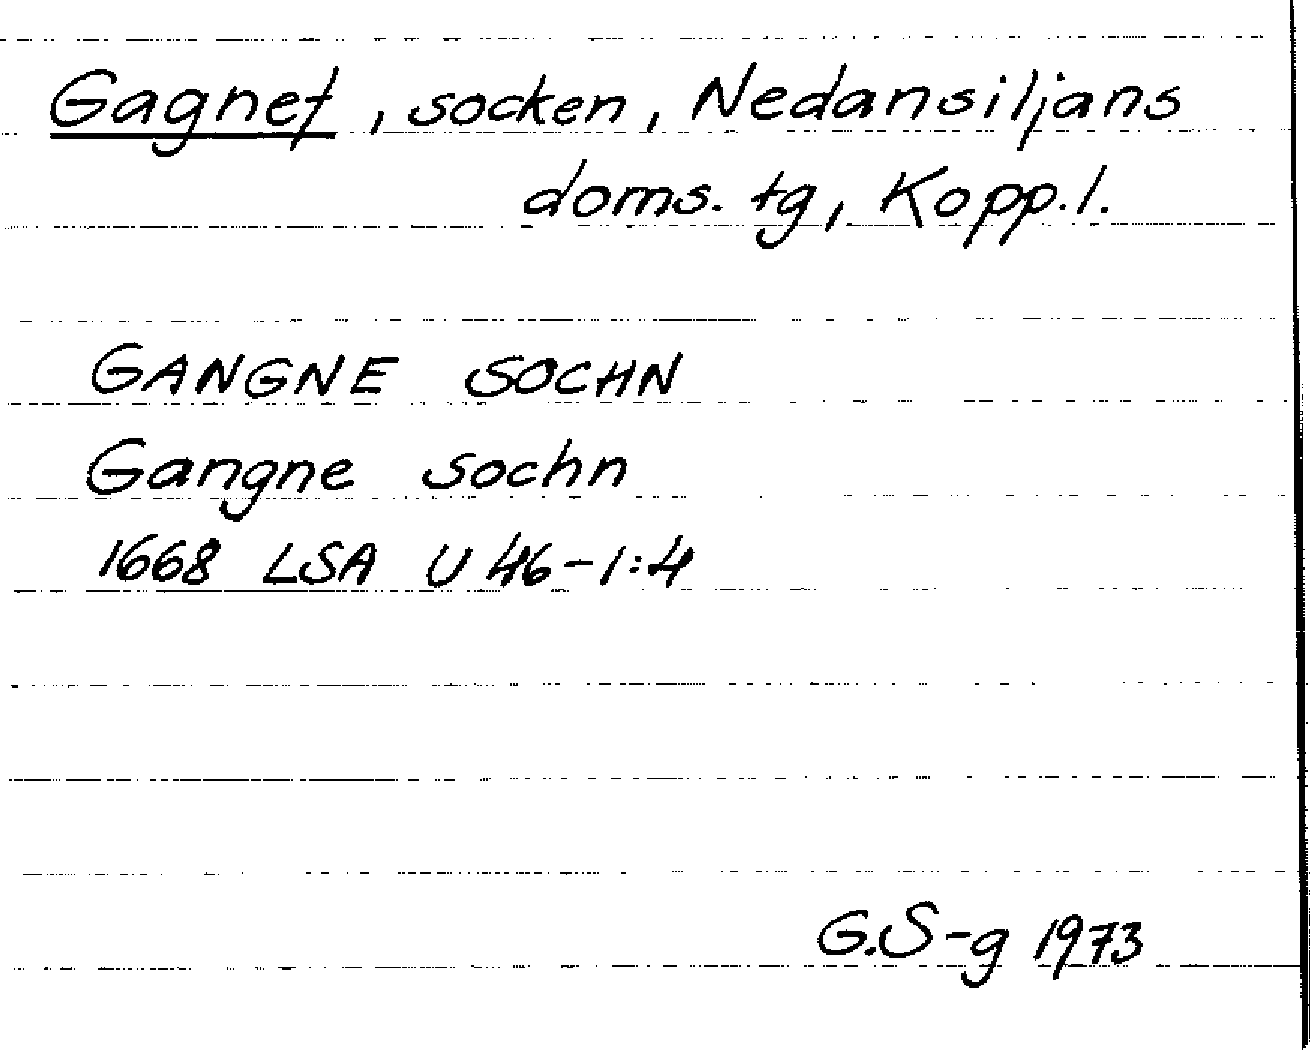 Gagnef, socken, Nedansiljans
doms. tg, Kopp.l.
GANGNE SOCHN
Gangne sochn
1668 LSA U 46-1:4
G.S-g 1973